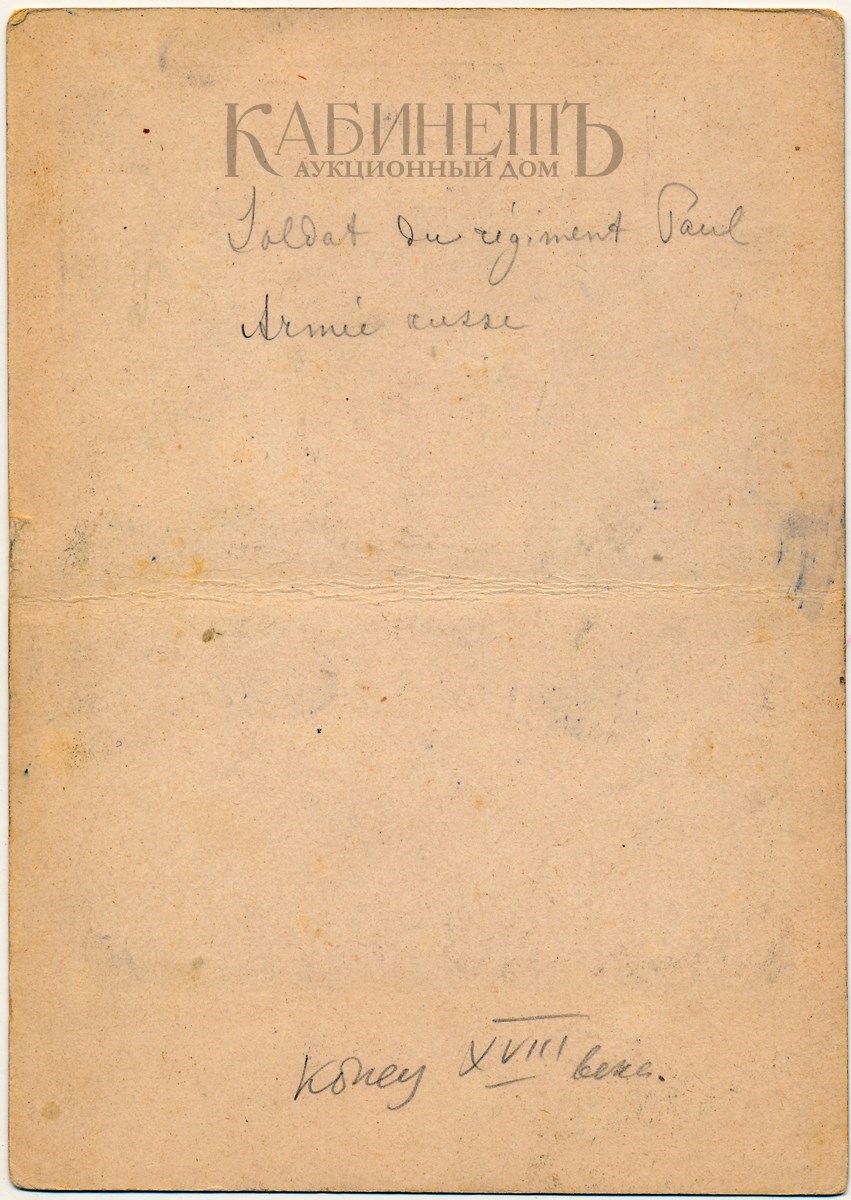 КАБИНЕТЪ
АУКЦИОННЫЙ ДОМ
Soldat du régiment Paul
Armée russe
Конец XVIII века.